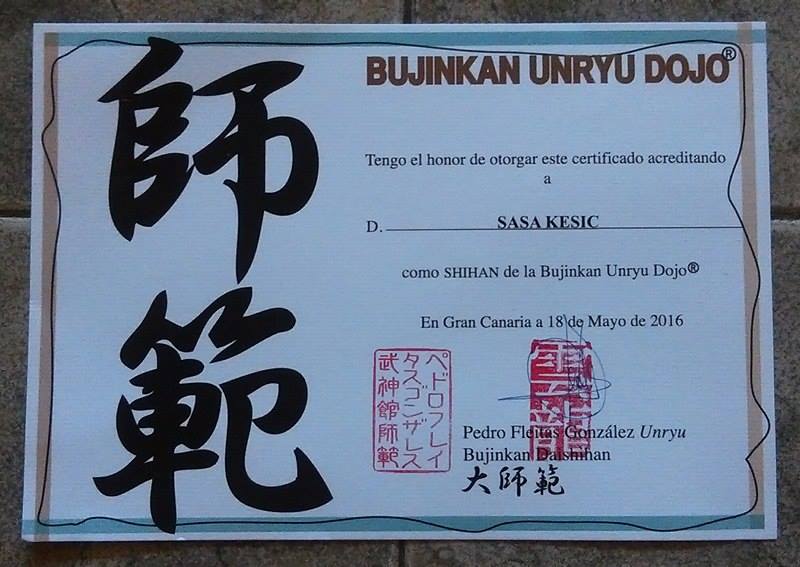 師範
BUJINKAN UNRYU DOJO®
Tengo el honor de otorgar este certificado acreditando
a
D. SASA KESIC
como SHIHAN de la Bujinkan Unryu Dojo®
En Gran Canaria a 18 de Mayo de 2016
ペドロフレイ
タスゴンザレス
武神館師範
雲龍
Pedro Fleitas González Unryu
Bujinkan Daishihan
大師範